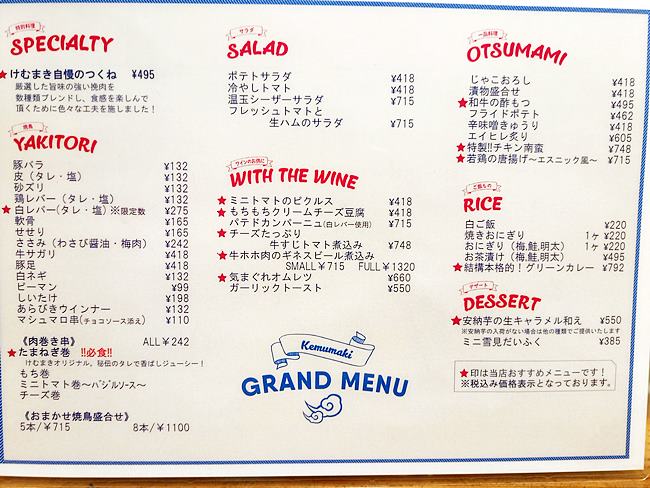 特別料理
SPECIALTY
★けむまき自慢のつくね ¥495
厳選した旨味の強い挽肉を
数種類ブレンドし、食感を楽しんで
頂くために色々な工夫を施しました!
焼鳥
YAKITORI
豚バラ ¥132
皮(タレ・塩) ¥132
砂ズリ ¥132
鶏レバー(タレ・塩) ¥132
★白レバー(タレ・塩)※限定数 ¥275
軟骨 ¥165
せせり ¥165
ささみ(わさび醤油・梅肉) ¥242
牛サガリ ¥418
豚足 ¥418
白ネギ ¥132
ピーマン ¥99
しいたけ ¥198
あらびきウインナー ¥132
マシュマロ串(チョコソース添え) ¥110
《肉巻き串》 ALL¥242
★たまねぎ巻 !!必食!!
けむまきオリジナル。秘伝のタレで香ばしジューシー!
もち巻
ミニトマト巻~バジルソース~
チーズ巻
《おまかせ焼鳥盛合せ》
5本/¥715 8本/¥1100
サラダ
SALAD
ポテトサラダ ¥418
冷やしトマト ¥418
温玉シーザーサラダ ¥715
フレッシュトマトと
生ハムのサラダ ¥715
ワインのお供に
WITH THE WINE
★ミニトマトのピクルス ¥418
★もちもちクリームチーズ豆腐 ¥418
パテドカンパーニュ(白レバー使用) ¥715
★チーズたっぷり
牛すじトマト煮込み ¥748
★牛ホホ肉のギネスビール煮込み
SMALL¥715 FULL¥1320
★気まぐれオムレツ ¥660
ガーリックトースト ¥550
Kemumaki
GRAND MENU
一品料理
OTSUMAMI
じゃこおろし ¥418
漬物盛合せ ¥418
★和牛の酢もつ ¥495
フライドポテト ¥462
辛味噌きゅうり ¥418
エイヒレ炙り ¥605
★特製!!チキン南蛮 ¥748
★若鶏の唐揚げ~エスニック風~ ¥715
ご飯もの
RICE
白ご飯 ¥220
焼きおにぎり 1ヶ¥220
おにぎり(梅,鮭,明太) 1ヶ¥220
お茶漬け(梅,鮭,明太) ¥495
★結構本格的!グリーンカレー ¥792
デザート
DESSERT
★安納芋の生キャラメル和え ¥550
※安納芋の入荷がない場合は他の種類でご提供いたします
ミニ雪見だいふく ¥385
★印は当店おすすめメニューです!
※税込み価格表示となっております。